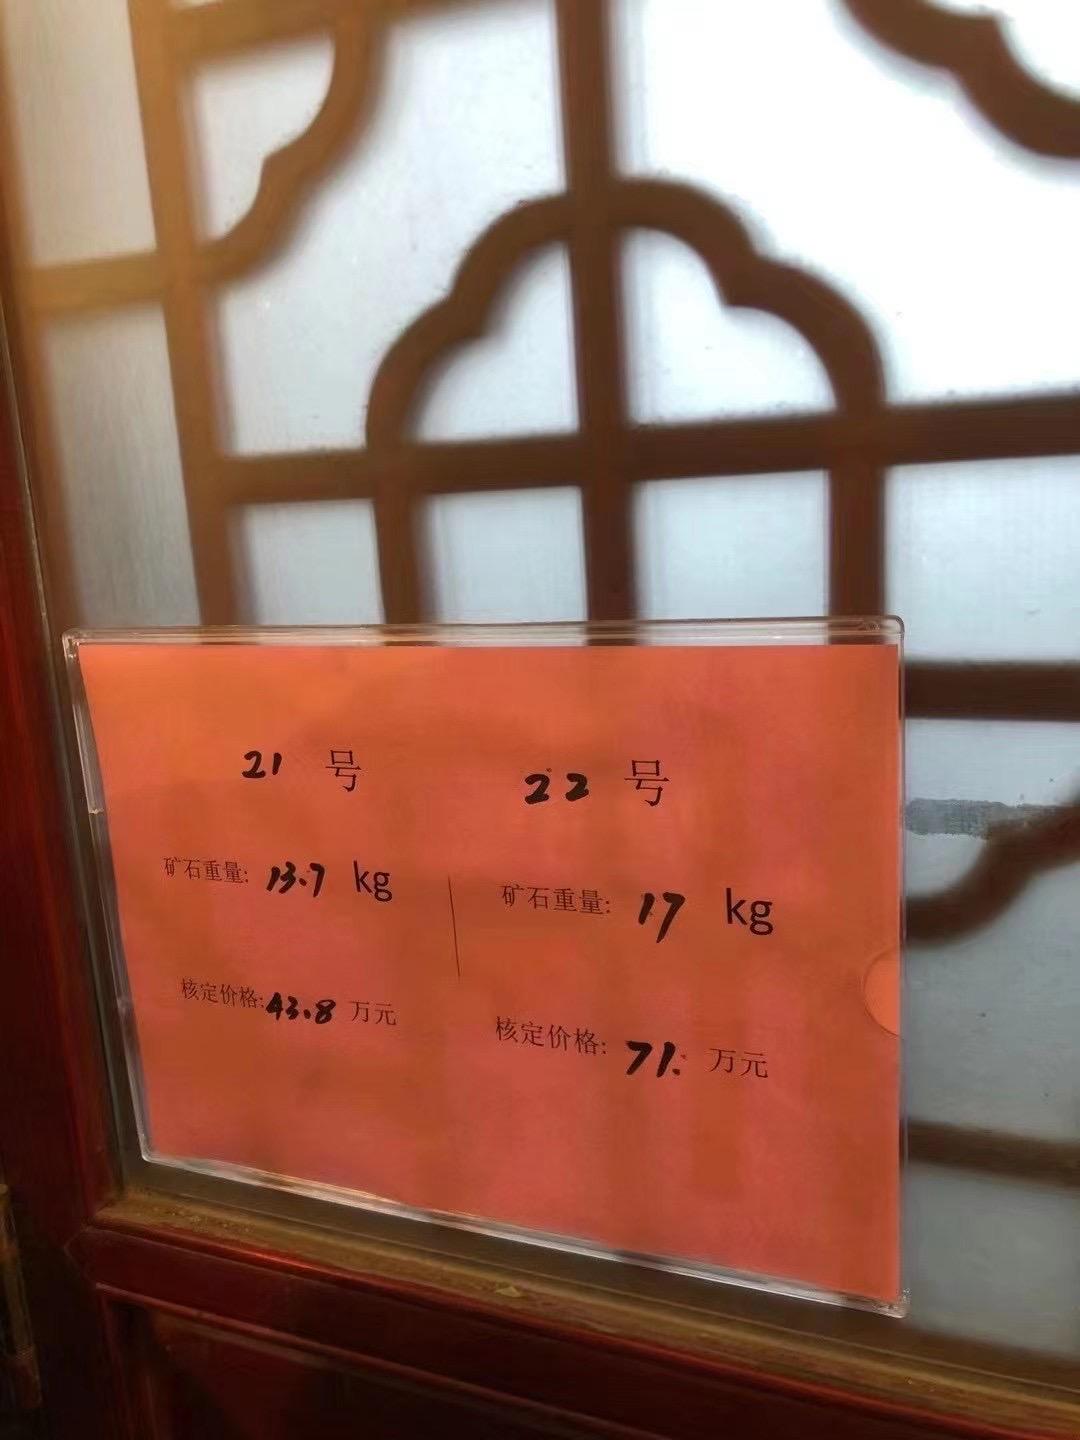 21 号
矿石重量: 13.7 kg
核定价格: 43.8 万元
22 号
矿石重量: 17 kg
核定价格: 71. 万元